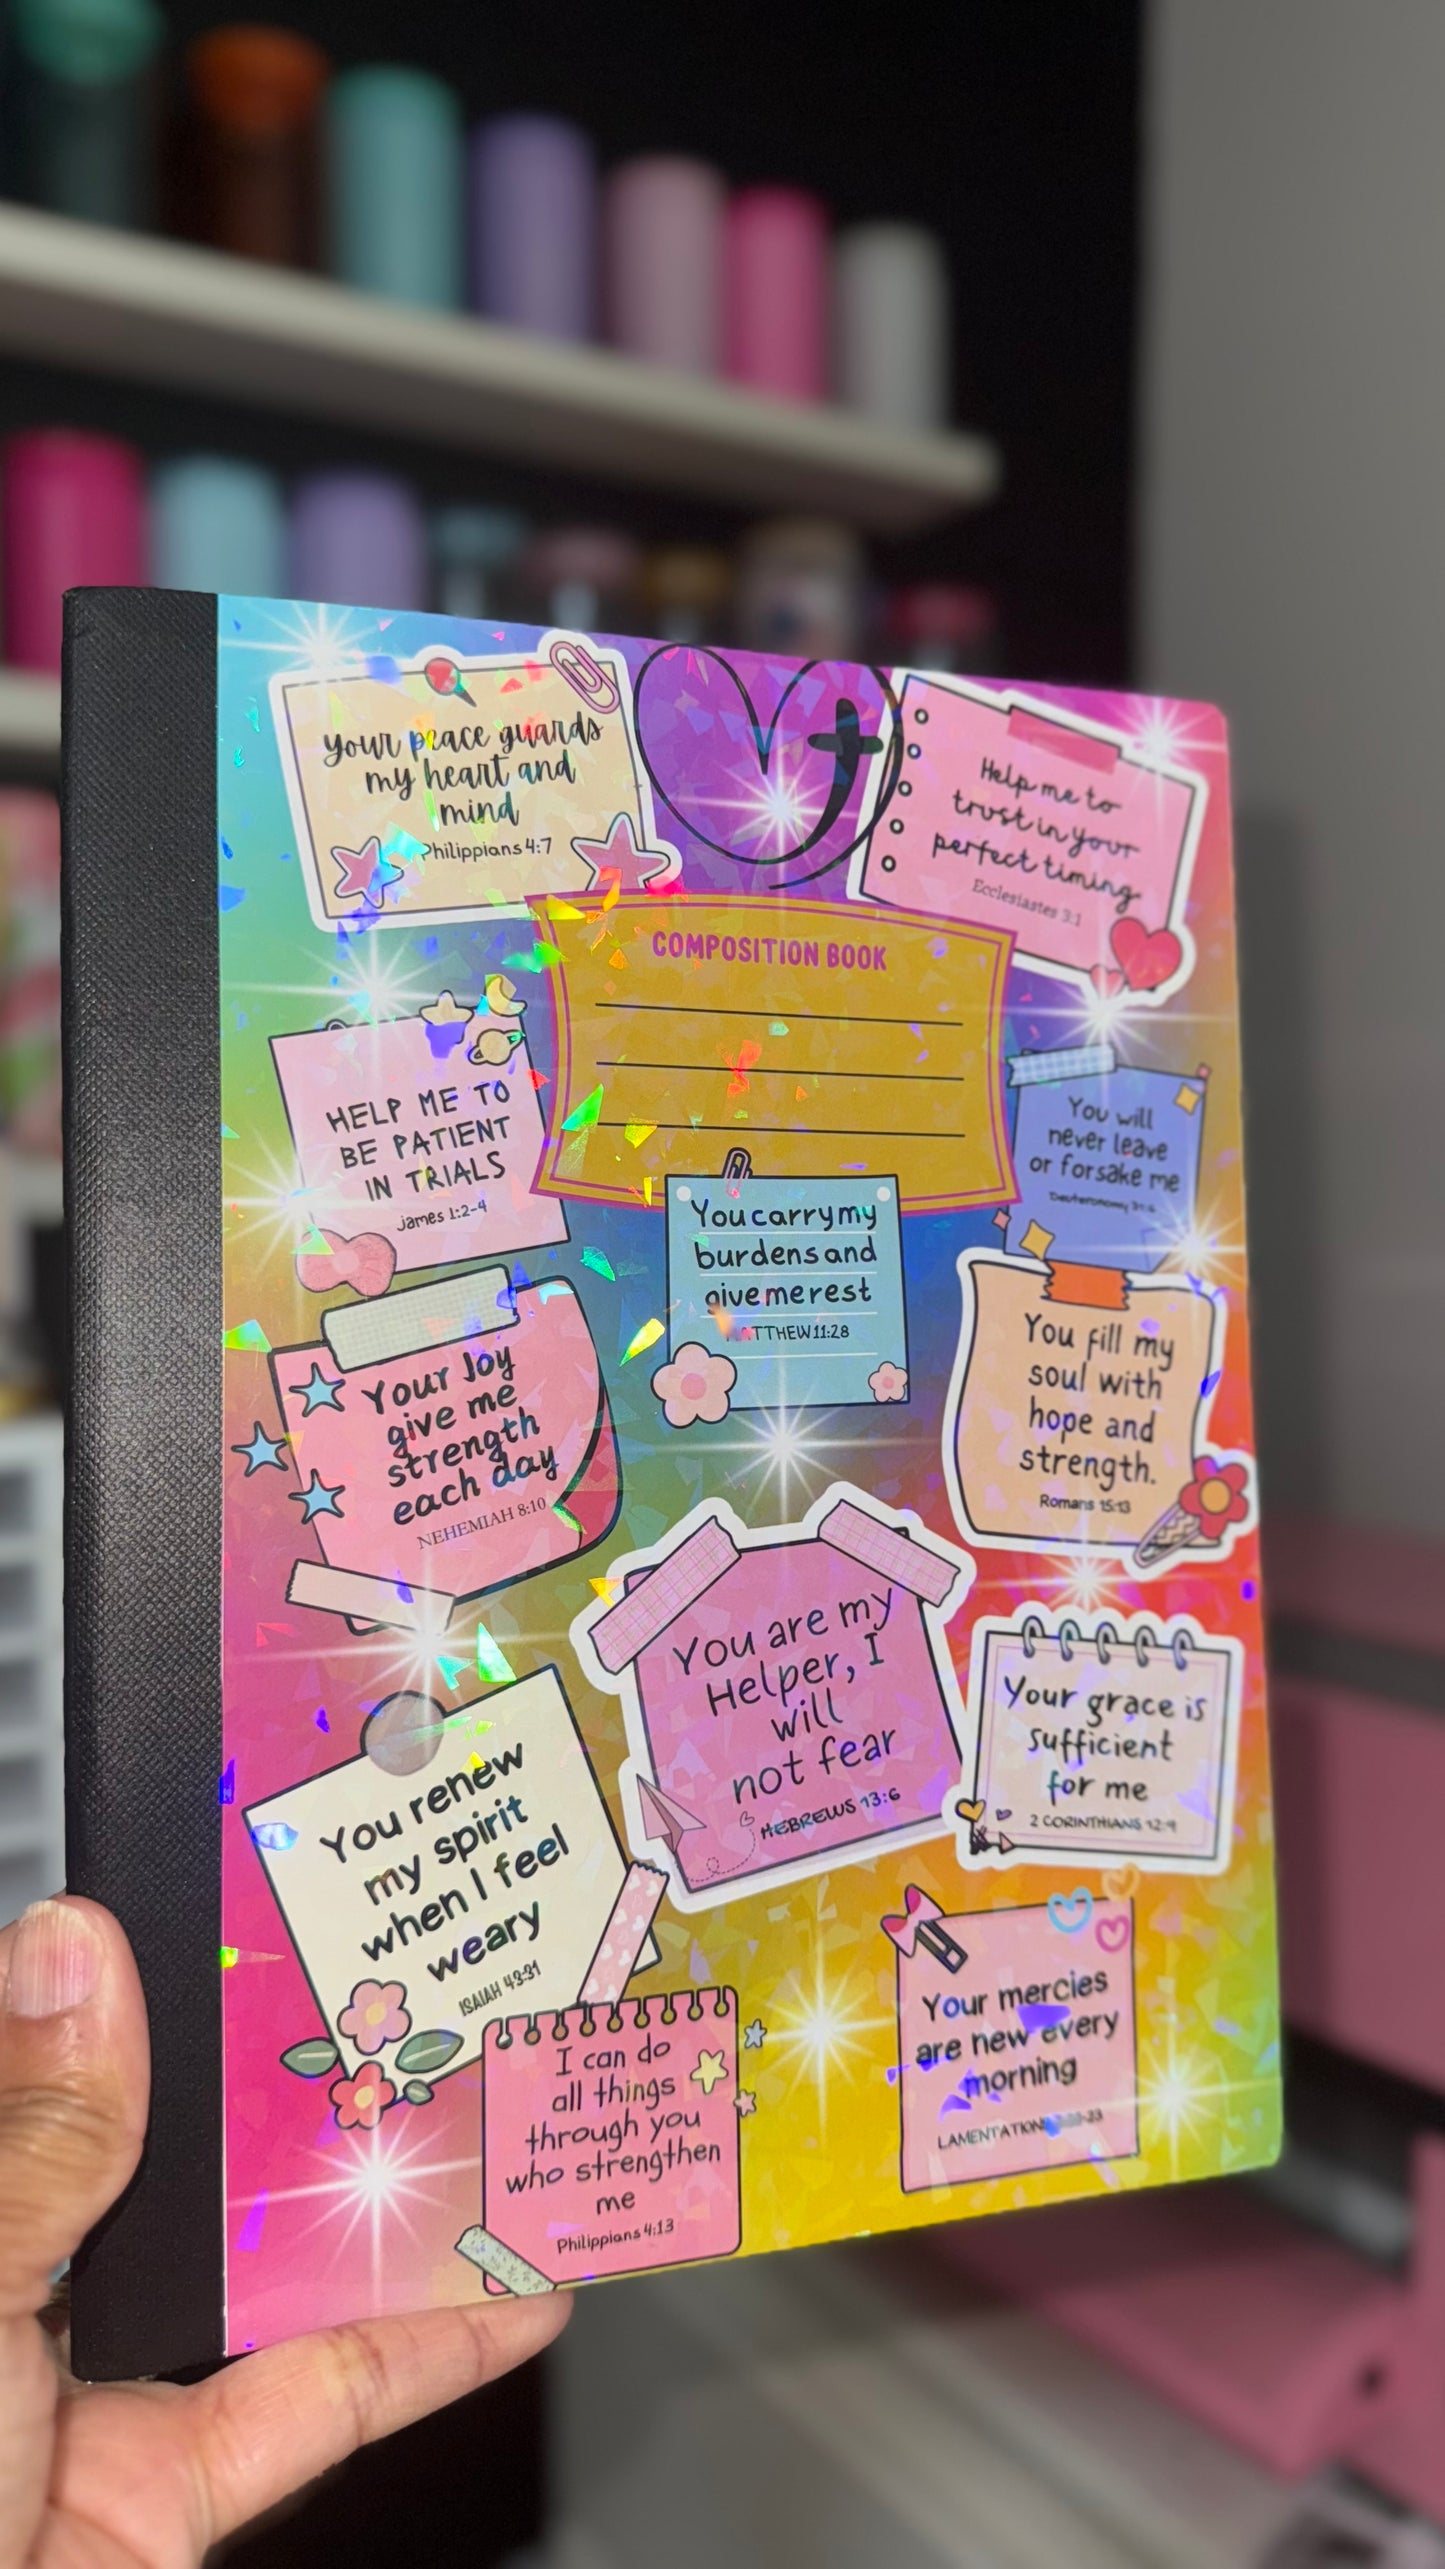 Your peace guards
my heart and
mind
Philippians 4:7
Help me to
trust in your
perfect timing
Ecclesiastes 3:1
COMPOSITION BOOK
HELP ME TO
BE PATIENT
IN TRIALS
James 1:2-4
You will
never leave
or forsake me
Deuteronomy 31:6
You carry my
burdens and
give me rest
MATTHEW 11:28
Your Joy
give me
strength
each day
NEHEMIAH 8:10
You fill my
soul with
hope and
strength.
Romans 15:13
You are my
Helper, I
will
not fear
HEBREWS 13:6
Your grace is
sufficient
for me
2 CORINTHIANS 12:9
You renew
my spirit
when I feel
weary
ISAIAH 43:31
I can do
all things
through you
who strengthen
me
Philippians 4:13
Your mercies
are new every
morning
LAMENTATIONS